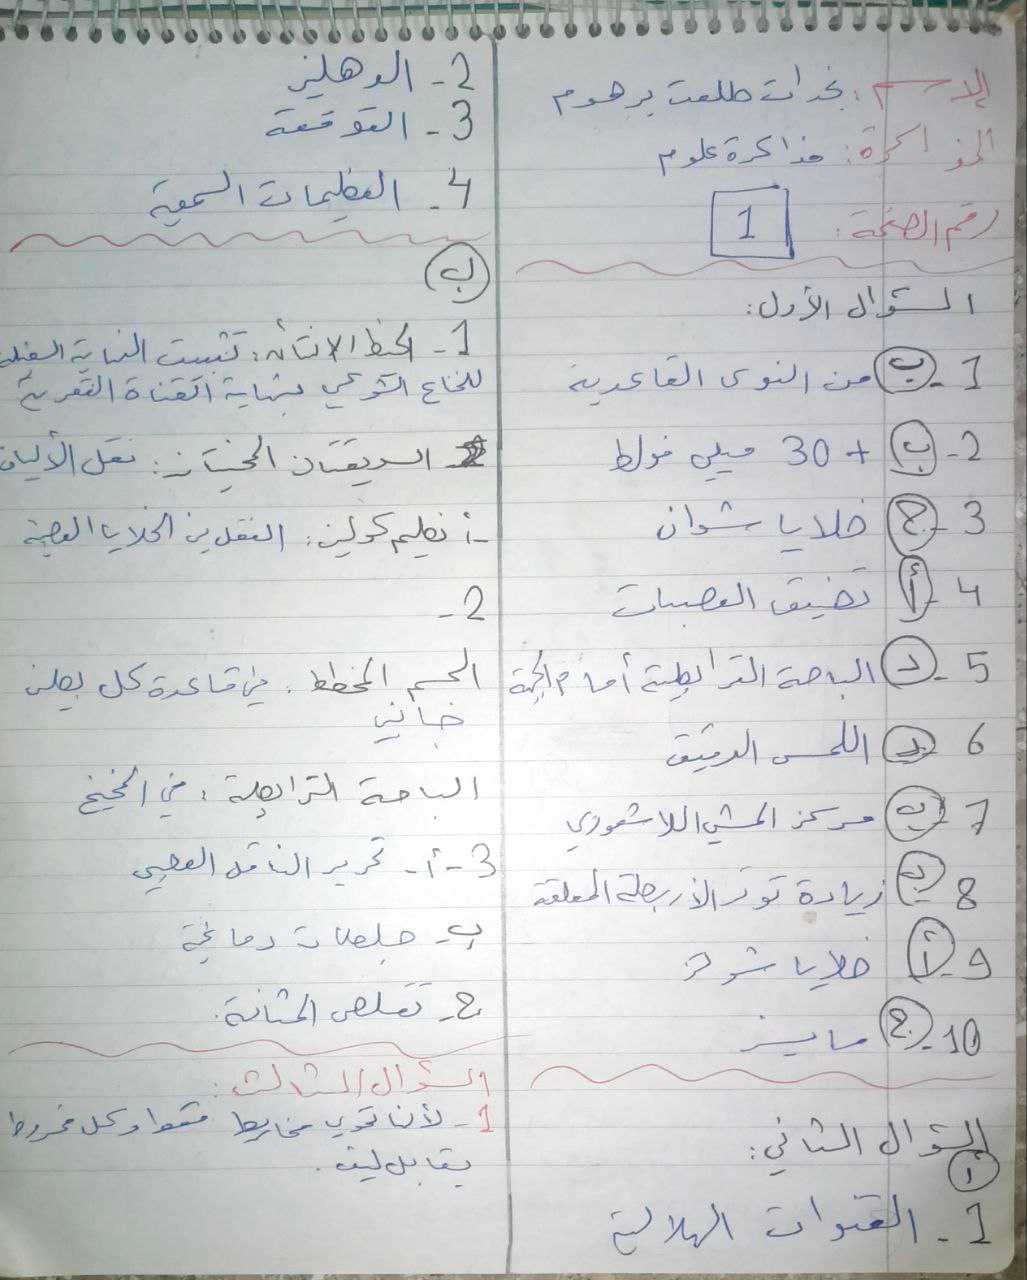 الاسم: نجدات طلعت برهوم
المذاكرة: مذاكرة علوم
رقم الصفحة: 1
السؤال الأول:
1- ب من النوى القاعدية
2- ب +30 ميلي فولط
3- ج خلايا شوان
4- أ تضيق القصبات
5- د الباحة الترابطية أمام الجبهية
6- د اللمس الدقيق
7- ب مركز المشي اللاشعوري
8- د زيادة توتر الأربطة المعلقة
9- أ خلايا شولتز
10- ج مايسنر
السؤال الثاني:
أ
1- القنوات الهلالية
2- الدهليز
3- القوقعة
4- العظيمات السمعية
ب
1- الخيط الانتهائي: تثبيت النهاية السفلية
للنخاع الشوكي بنهاية القناة الفقرية
السويقتان المخيتان: نقل الألياف
أ- نظيم كولين: النقل بين الخلايا العصبية
2-
الجسم المخطط: في قاعدة كل بطين
جانبي
الباحة الترابطية: في المخيخ
3- أ- تحرير الناقل العصبي
ب- جلطات دماغية
ج- تقلص المثانة.
السؤال الثالث:
1- لأنها تحوي مخاريط فقط وكل مخروط
يقابل ليف.